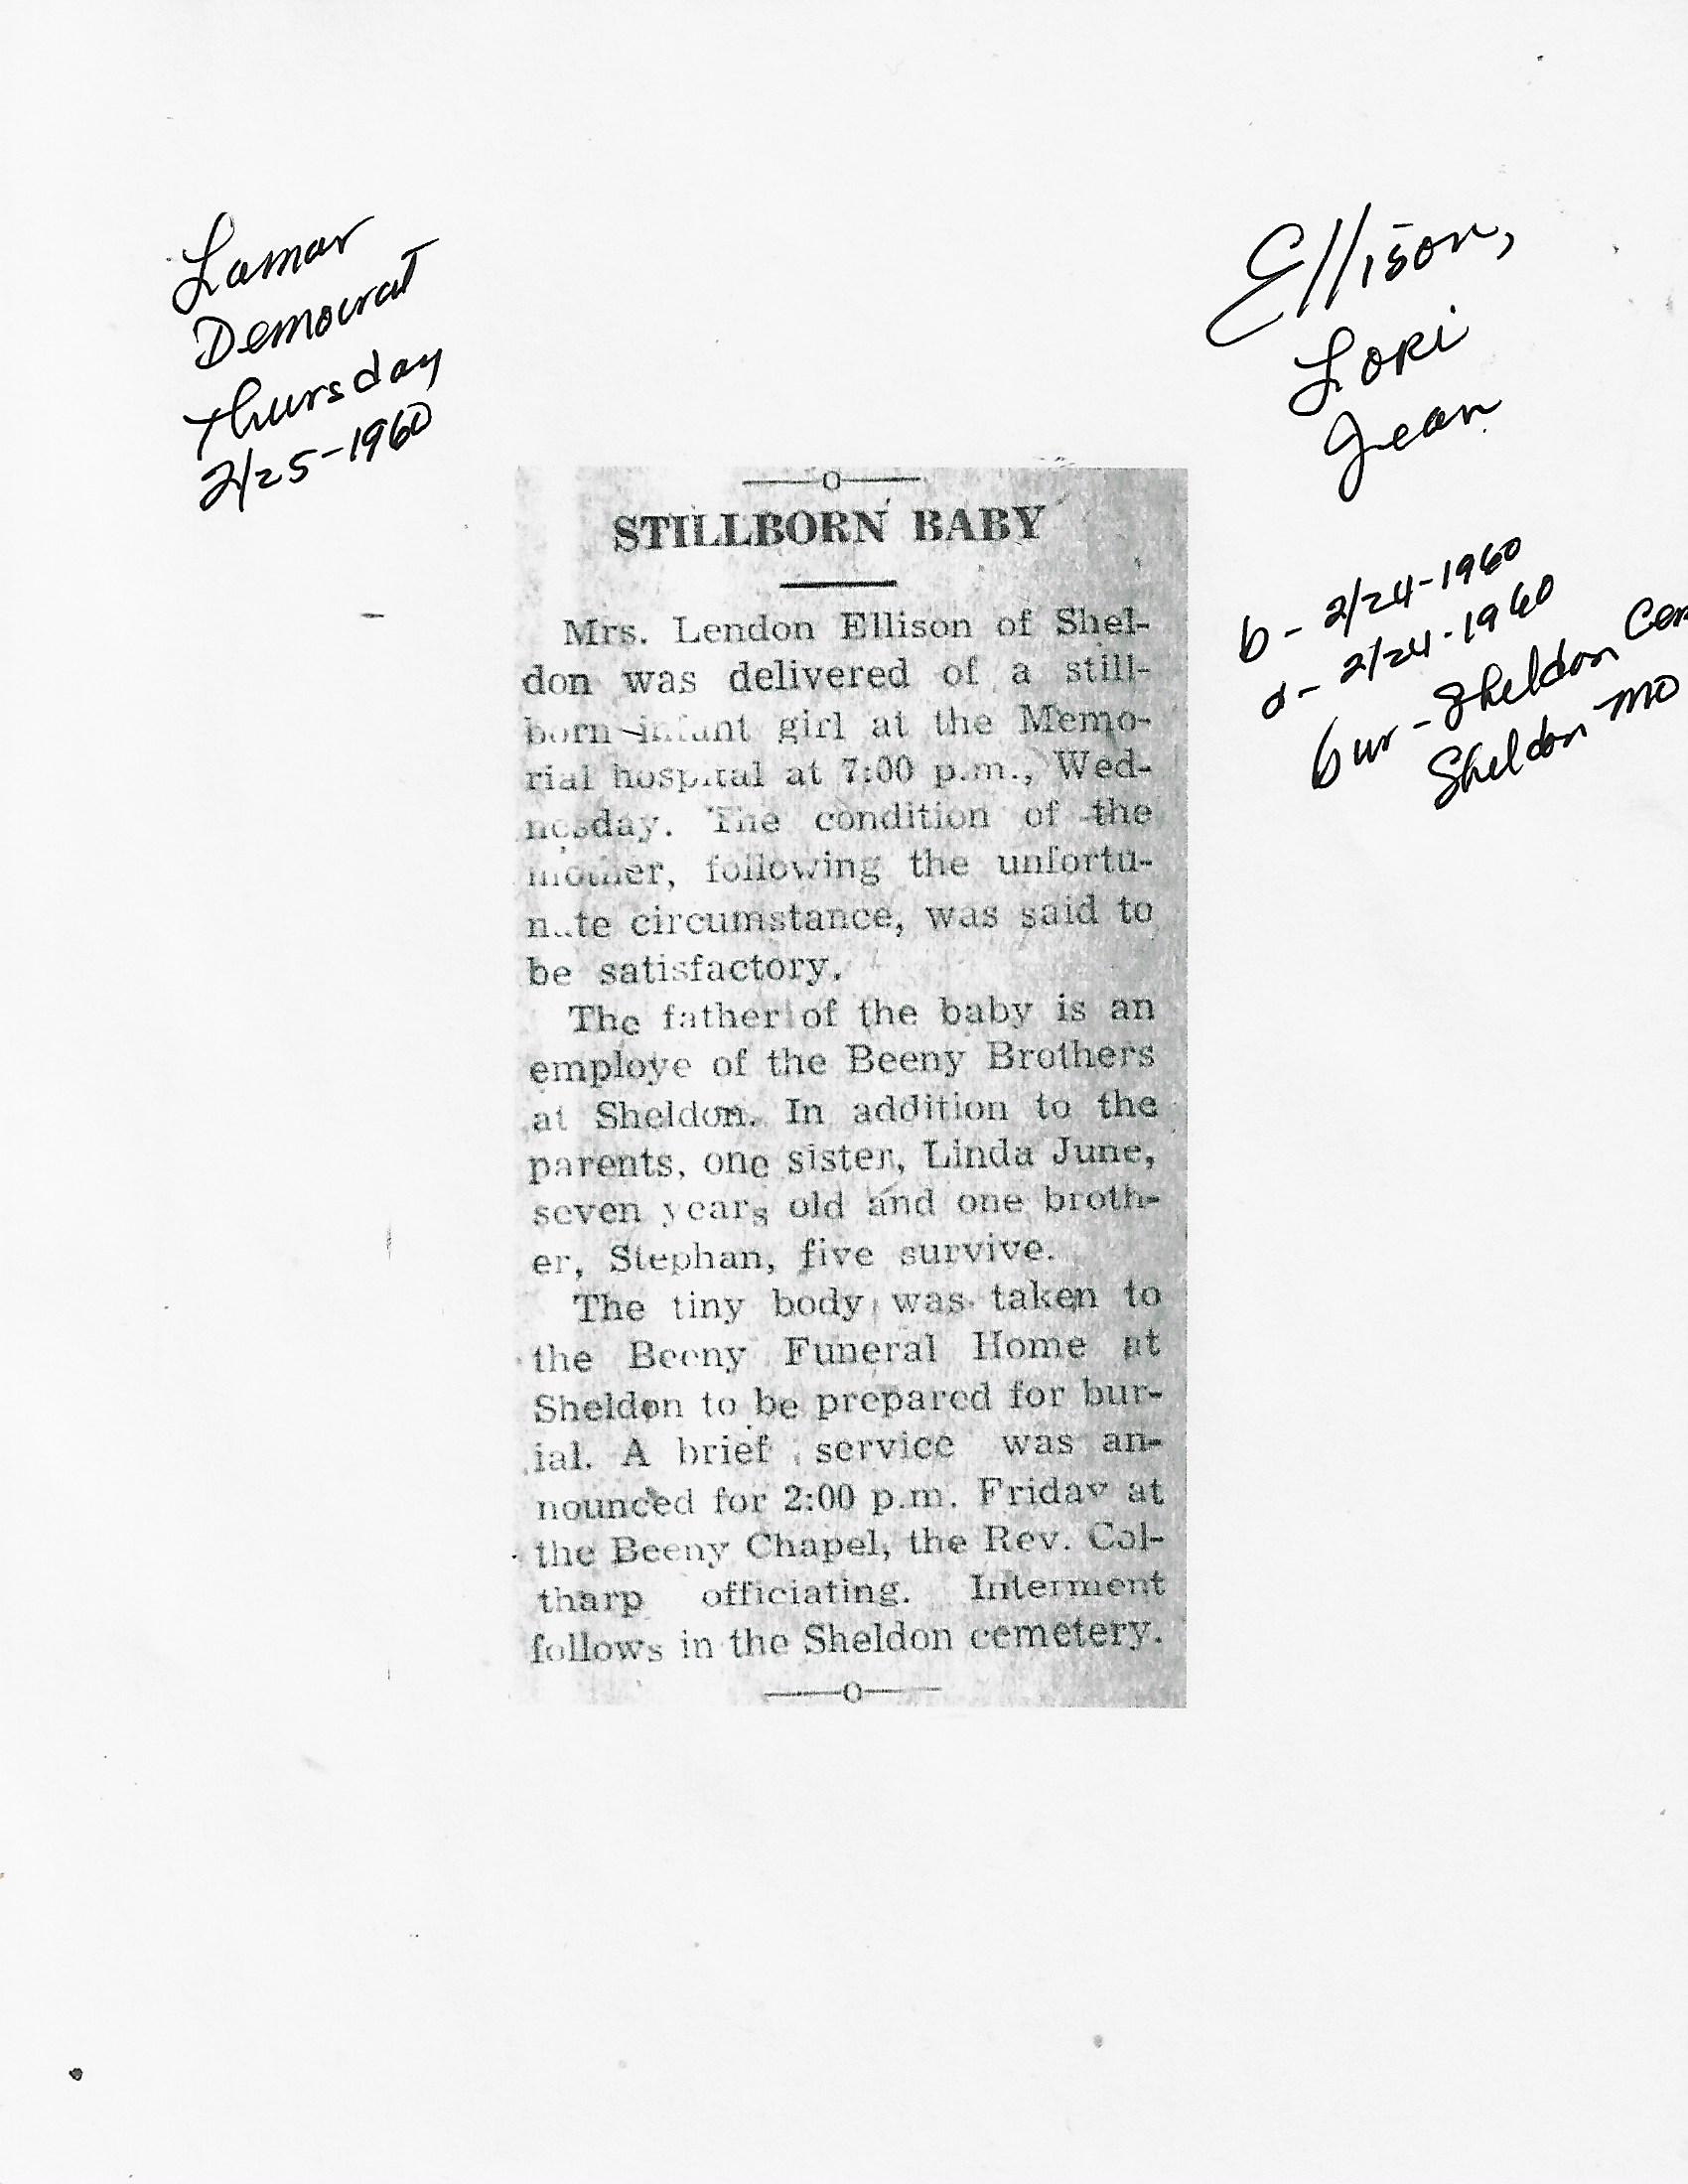 Lamar
Democrat
Thursday
2/25-1960
Ellison,
Lori
Jean
b - 2/24-1960
d - 2/24-1960
bur - Sheldon Cem
Sheldon MO
—o—
STILLBORN BABY
Mrs. Lendon Ellison of Shel-
don was delivered of a still-
born infant girl at the Memo-
rial hospital at 7:00 p.m., Wed-
nesday. The condition of the
mother, following the unfortu-
nate circumstance, was said to
be satisfactory.
The father of the baby is an
employe of the Beeny Brothers
at Sheldon. In addition to the
parents, one sister, Linda June,
seven years old and one broth-
er, Stephan, five survive.
The tiny body was taken to
the Beeny Funeral Home at
Sheldon to be prepared for bur-
ial. A brief service was an-
nounced for 2:00 p.m. Friday at
the Beeny Chapel, the Rev. Col-
tharp officiating. Interment
follows in the Sheldon cemetery.
—o—